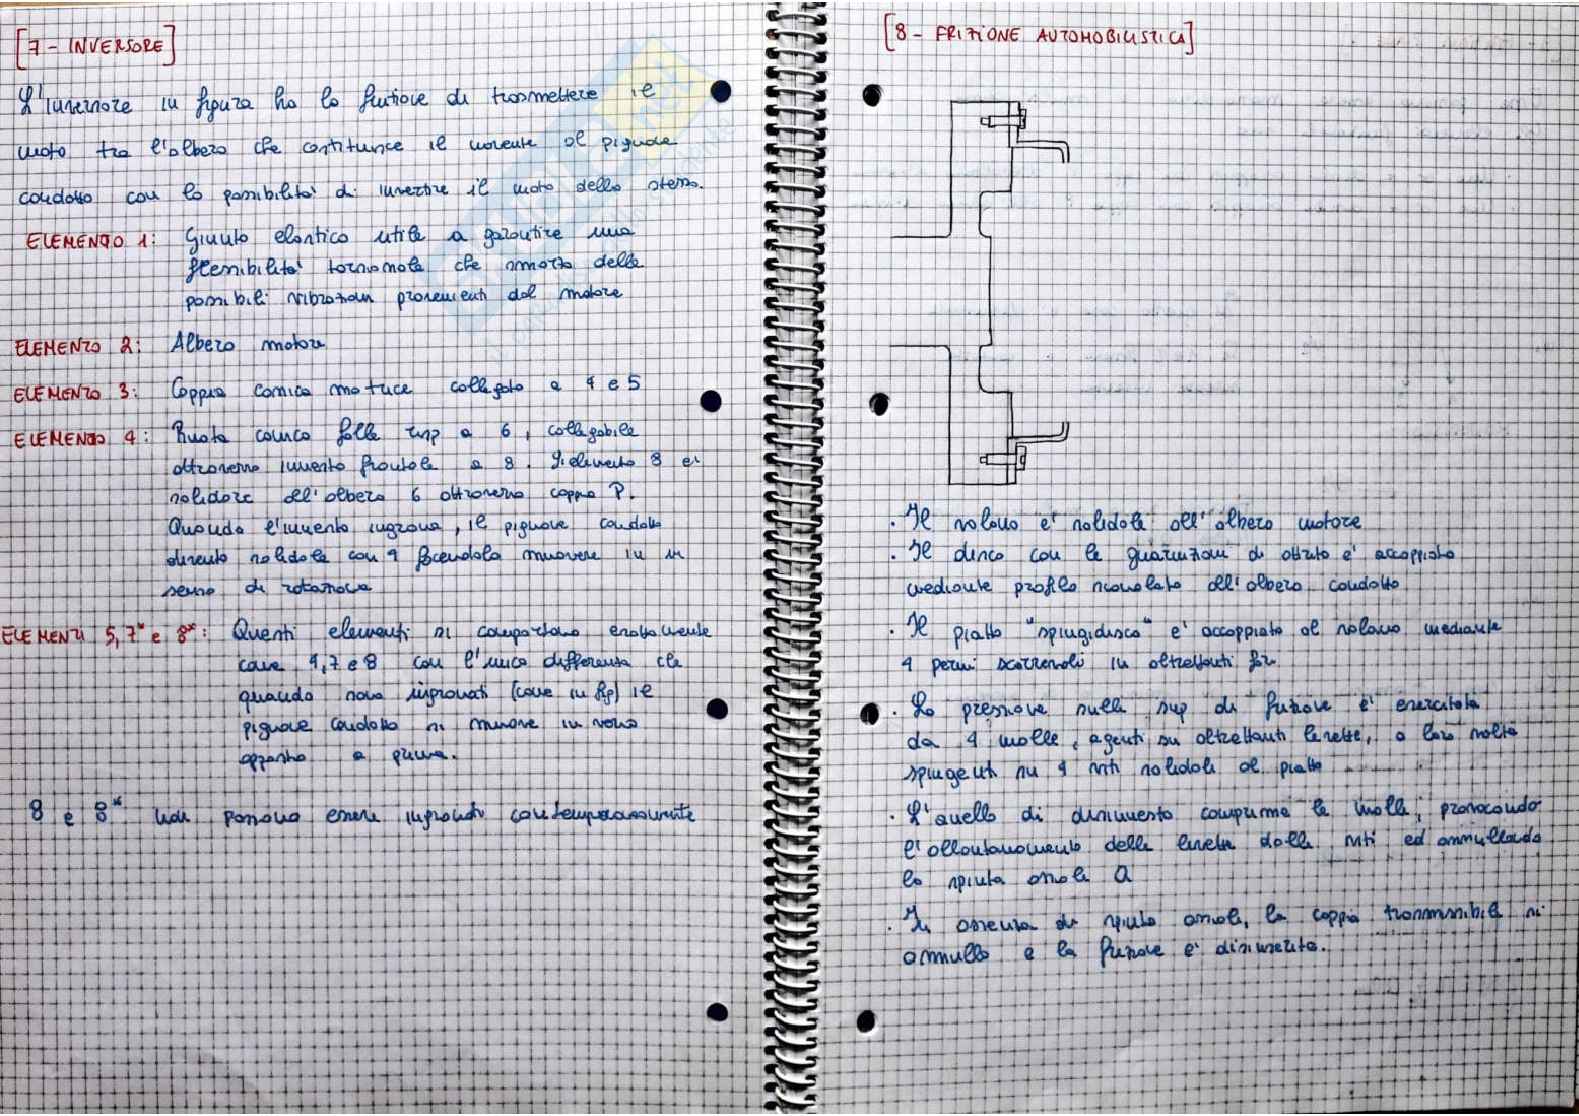 [7 - INVERSORE]
L'inversore in figura ha la funzione di trasmettere il
moto tra l'albero che costituisce il movente al pignone
condotto con la possibilità di invertire il moto dello stesso.
ELEMENTO 1: Giunto elastico utile a garantire una
flessibilità torsionale che smorza delle
possibili vibrazioni provenienti dal motore
ELEMENTO 2: Albero motore
ELEMENTO 3: Coppia conica motrice collegata a 4 e 5
ELEMENTO 4: Ruota conica folle risp a 6, collegabile
attraverso innesto frontale a 8. L'elemento 8 è
solidare all'albero 6 attraverso coppia P.
Quando l'innesto ingrana, il pignone condotto
diventa solidale con 4 facendola muovere in un
senso di rotazione
ELEMENTI 5, 7* e 8*: Questi elementi si comportano esattamente
come 4, 7 e 8 con l'unica differenza che
quando sono ingranati (come in fig) il
pignone condotto si muove in verso
opposto a prima.
8 e 8* non possono essere ingranati contemporaneamente
[8 - FRIZIONE AUTOMOBILISTICA]
· Il volano è solidale all'albero motore
· Il disco con le guarnizioni di attrito è accoppiato
mediante profilo scanalato all'albero condotto
· Il piatto "spingidisco" è accoppiato al volano mediante
4 perni scorrevoli in altrettanti fori
· La pressione sulle sup di frizione è esercitata
da 4 molle, agenti su altrettanti levette, a loro volta
spingenti su 4 viti solidali al piatto
· L'anello di disinnesto comprime le molle, provocando
l'allontanamento delle levette dalle viti ed annullando
la spinta assiale Q
· In assenza di spinta assiale, la coppia trasmissibile si
annulla e la frizione è disinnestata.